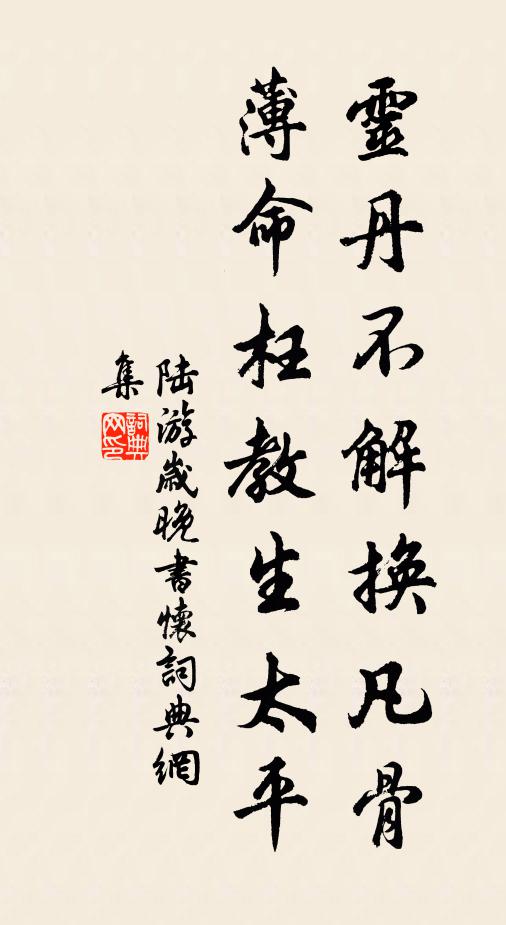 靈丹不解換凡骨
薄命枉教生太平
陆游歲晚書懷詞典網
集
詞典
网印